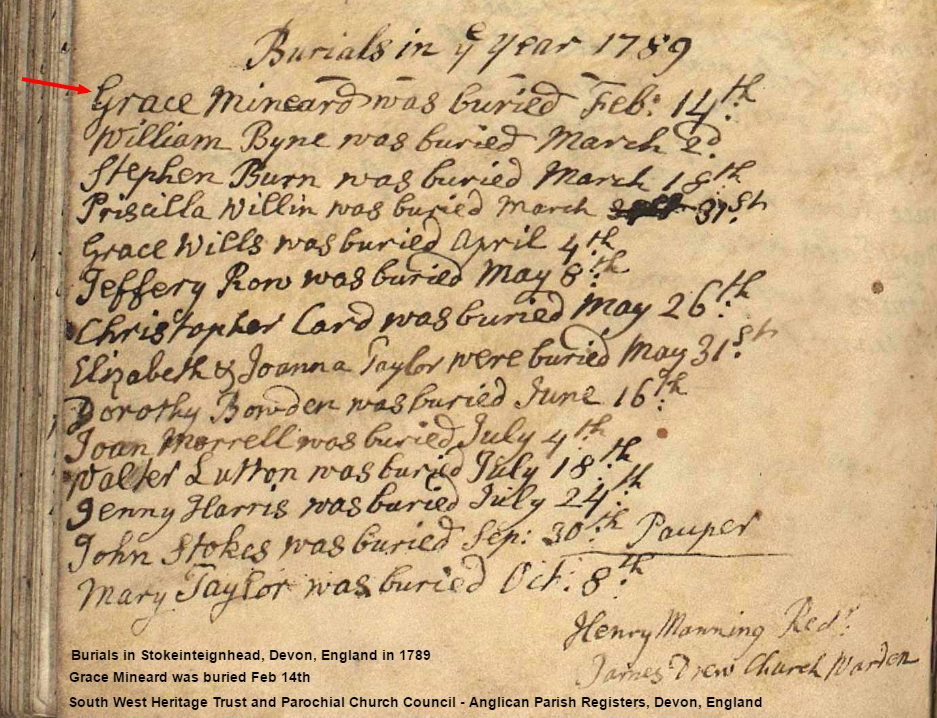 Burials in yͤ Year 1789
Grace Mineard was buried Feb: 14th
William Byne was buried March 2d
Stephen Burn was buried March 18th
Priscilla Willin was buried March 31st
Grace Wills was buried April 4th
Jeffery Row was buried May 8th
Christopher Card was buried May 26th
Elizabeth & Joanna Taylor were buried May 31st
Dorothy Bowden was buried June 16th
Joan Morrell was buried July 4th
Walter Lutton was buried July 18th
Jenny Harris was buried July 24th
John Stokes was buried Sep: 30th Pauper
Mary Taylor was buried Oct: 8th
Henry Manning Rectr
James Drew Church Warden
Burials in Stokeinteignhead, Devon, England in 1789
Grace Mineard was buried Feb 14th
South West Heritage Trust and Parochial Church Council - Anglican Parish Registers, Devon, England